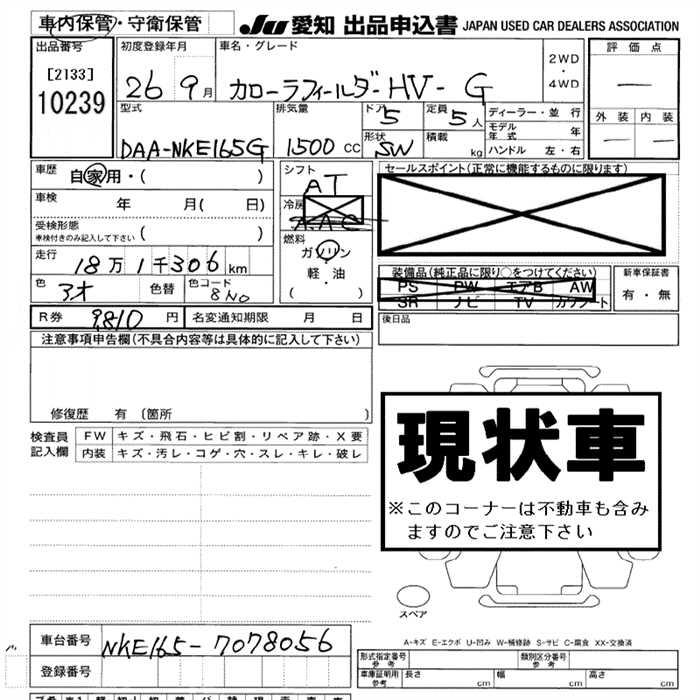 車内保管・守衛保管
JU 愛知 出品申込書 JAPAN USED CAR DEALERS ASSOCIATION
出品番号
[2133]
10239
初度登録年月
26 9月
車名・グレード
カローラフィールダーHV-G
2WD
・
4WD
評価点
—
外装 内装
— —
型式
DAA-NKE165G
排気量
1500 CC
ドア
5
形状
SW
定員
5人
積載
kg
ディーラー・並行
モデル年式 年
ハンドル 左・右
車歴
自家用・( )
車検
年 月( 日)
受検形態
車検付きのみ記入して下さい ( )
走行
18万1千306km
色
アオ
色替
色コード
8N0
シフト
AT
冷房
AAC
燃料
ガソリン
・
軽・油
( )
セールスポイント(正常に機能するものに限ります)
装備品(純正品に限り○をつけてください)
PS PW エアB AW
SR ナビ TV カワシート
新車保証書
有・無
R券 9,810 円
名変通知期限 月 日
後日品
注意事項申告欄(不具合内容等は具体的に記入して下さい)
修復歴 有 (箇所 )
検査員
記入欄
FW キズ・飛石・ヒビ割・リペア跡・X要
内装 キズ・汚レ・コゲ・穴・スレ・キレ・破レ
現状車
※このコーナーは不動車も含み
ますのでご注意下さい
スペア
A-キズ E-エクボ U-凹み W-補修跡 S-サビ C-腐食 XX-交換済
車台番号 NKE165-7078056
登録番号
形式指定番号
参考
類別区分番号
参考
車庫証明用
参考
長さ cm 幅 cm 高さ cm